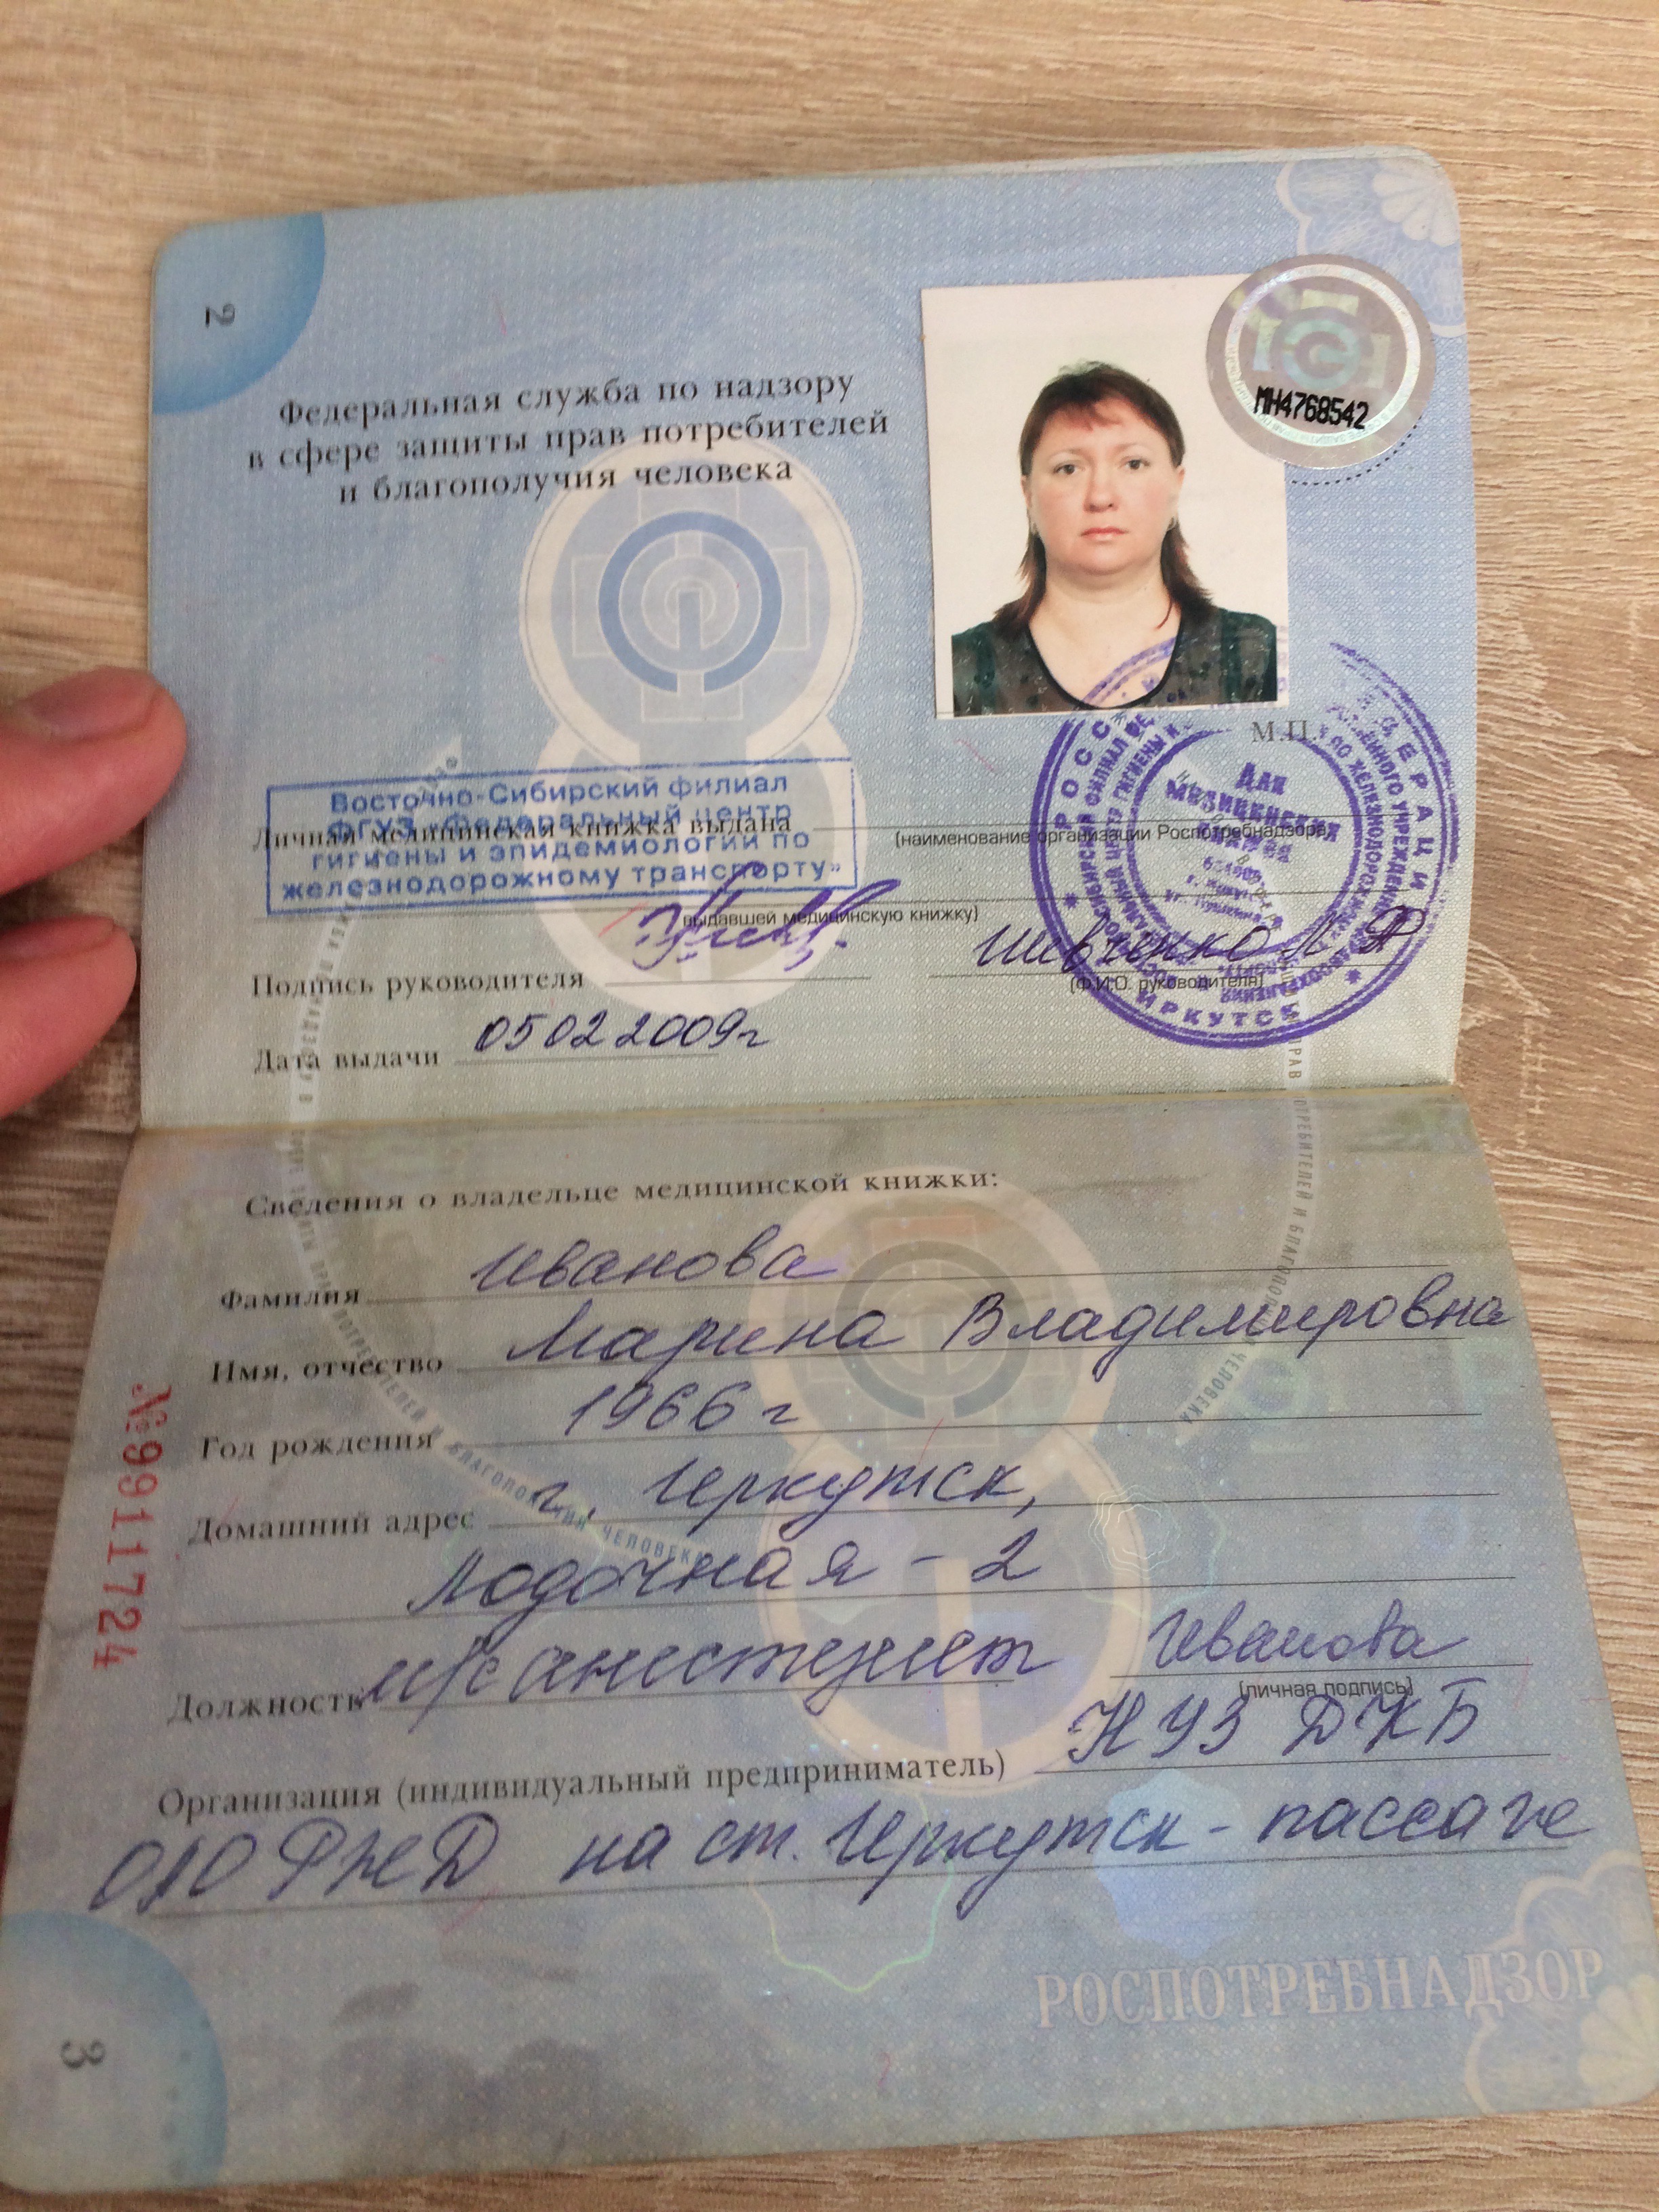 2
Федеральная служба по надзору
в сфере защиты прав потребителей
и благополучия человека
МН4768542
М.П.
Восточно-Сибирский филиал
ФГУЗ «Федеральный центр
гигиены и эпидемиологии по
железнодорожному транспорту»
Личная медицинская книжка выдана
(наименование организации Роспотребнадзора,
выдавшей медицинскую книжку)
Для
медицинских
ИРКУТСК
Подпись руководителя
Шевченко Л Ф
(Ф.И.О. руководителя)
Дата выдачи 05 02 2009г
Сведения о владельце медицинской книжки:
Фамилия Иванова
Имя, отчество Марина Владимировна
Год рождения 1966 г
Домашний адрес г. Иркутск,
Лодочная - 2
Должность м/с анестезист Иванова
(личная подпись)
Организация (индивидуальный предприниматель) НУЗ ДКБ
ОАО РЖД на ст. Иркутск - пассаж
№9911724
РОСПОТРЕБНАДЗОР
3